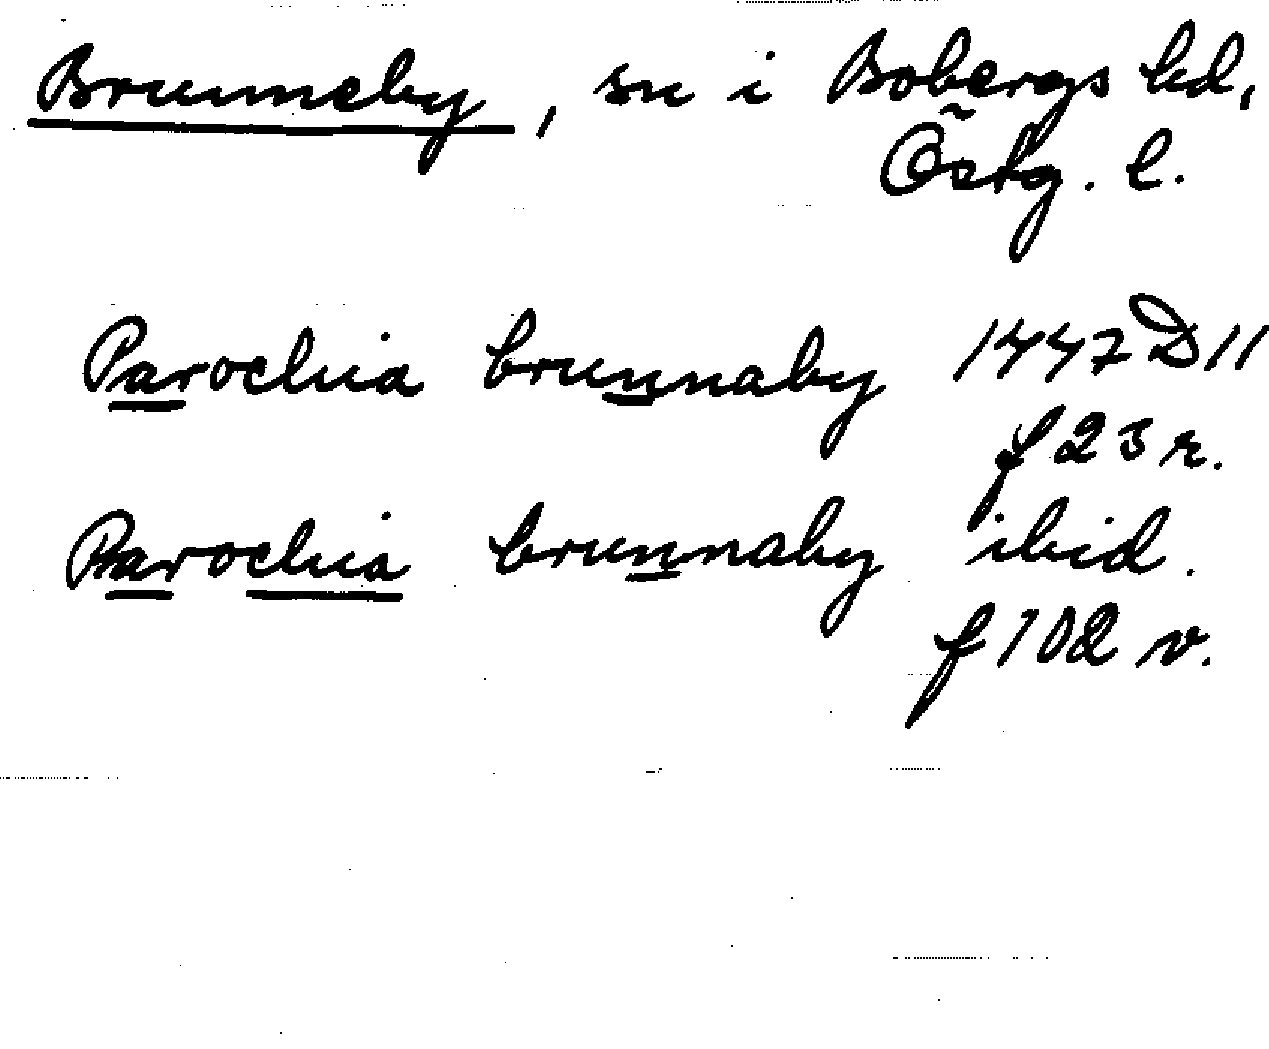 Brunneby, sn i Bobergs hd,
Östg. l.
Parochia brunnaby 1447 D 11
f 23 r.
Parochia brunnaby ibid.
f 102 v.